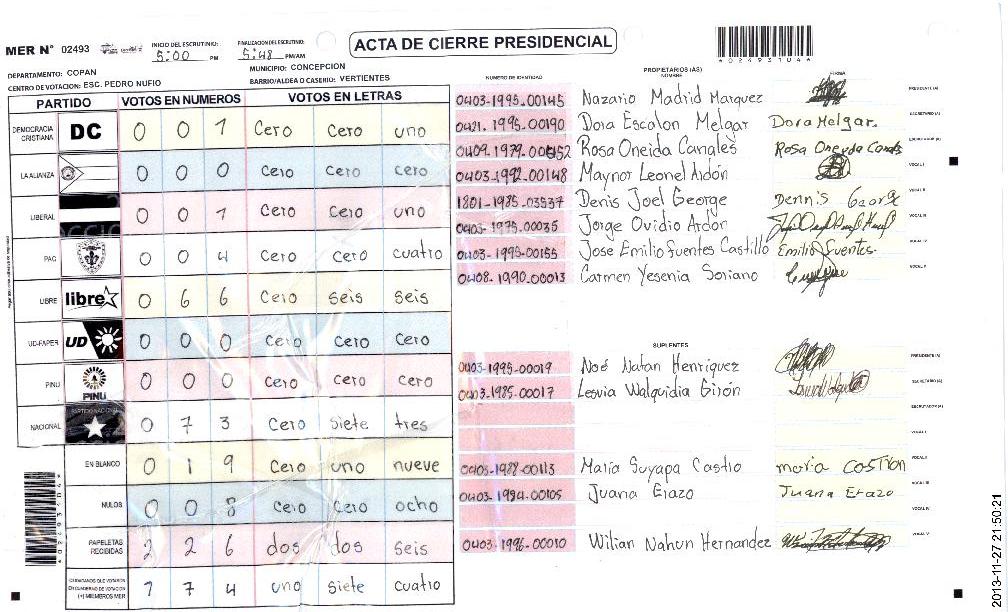 MER N° 02493
INICIO DEL ESCRUTINIO: 5:00 PM
FINALIZACION DEL ESCRUTINIO: 5:48 PM/AM
ACTA DE CIERRE PRESIDENCIAL
*02493104*
DEPARTAMENTO: COPAN
MUNICIPIO: CONCEPCION
CENTRO DE VOTACION: ESC. PEDRO NUFIO
BARRIO/ALDEA O CASERIO: VERTIENTES
PARTIDO VOTOS EN NUMEROS VOTOS EN LETRAS
DEMOCRACIA CRISTIANA DC 0 0 1 Cero Cero uno
LA ALIANZA 0 0 0 Cero Cero Cero
LIBERAL 0 0 1 Cero Cero uno
PAC 0 0 4 Cero Cero cuatro
LIBRE libre 0 6 6 Cero Seis Seis
UD-FAPER UD 0 0 0 Cero Cero Cero
PINU PINU 0 0 0 Cero Cero Cero
NACIONAL PARTIDO NACIONAL 0 7 3 Cero Siete tres
EN BLANCO 0 1 9 Cero uno nueve
NULOS 0 0 8 Cero Cero ocho
PAPELETAS RECIBIDAS 2 2 6 dos dos Seis
CIUDADANOS QUE VOTARON EN CUADERNO DE VOTACION (+) MIEMBROS MER 1 7 4 uno Siete cuatro
NUMERO DE IDENTIDAD PROPIETARIOS (AS) NOMBRE FIRMA
0403-1995-00145 Nazario Madrid Marquez PRESIDENTE (A)
0421-1995-00190 Dora Escalon Melgar Dora Melgar. SECRETARIO (A)
Rosa Oneida Canales ESCRUTADOR (A)
0403-1992-00148 Maynor Leonel Ardón VOCAL I
1801-1985-03537 Denis Joel George Dennis George VOCAL II
0403-1975-00035 Jorge Ovidio Ardon VOCAL III
0403-1995-00155 Jose Emilio fuentes Castillo Emilio fuentes. VOCAL IV
0408-1990-00013 Carmen Yesenia Soriano VOCAL V
SUPLENTES
0403-1995-00019 Noé Natan Henriquez PRESIDENTE (A)
0403-1985-00017 Lesvia Walquidia Girón SECRETARIO (A)
ESCRUTADOR (A)
VOCAL I
0403-1988-00113 Maria Suyapa Castro VOCAL II
0403-1984-00105 Juana Erazo Juana Erazo VOCAL III
VOCAL IV
0403-1996-00010 Wilian Nahun Hernandez VOCAL V
2013-11-27 21:50:21